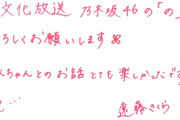 文化放送 乃木坂46の「の」
ろしくお願いします
んちゃんとのお話とても楽しかったです
遠藤さくら